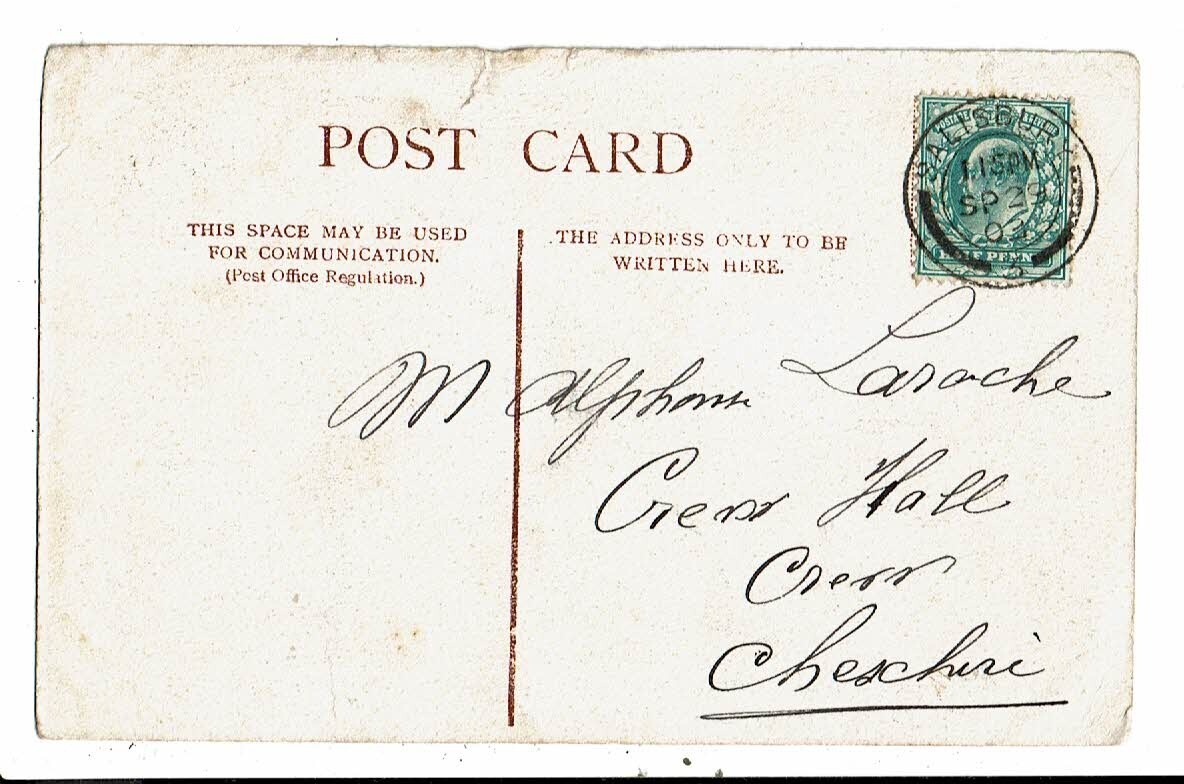 POST CARD
THIS SPACE MAY BE USED
FOR COMMUNICATION.
(Post Office Regulation.)
THE ADDRESS ONLY TO BE
WRITTEN HERE.
POSTAGE REVENUE
SALISBURY
1.15PM
SP 29
PENNY
M Alphonse Laroche
Crewe Hall
Crewe
Cheschire